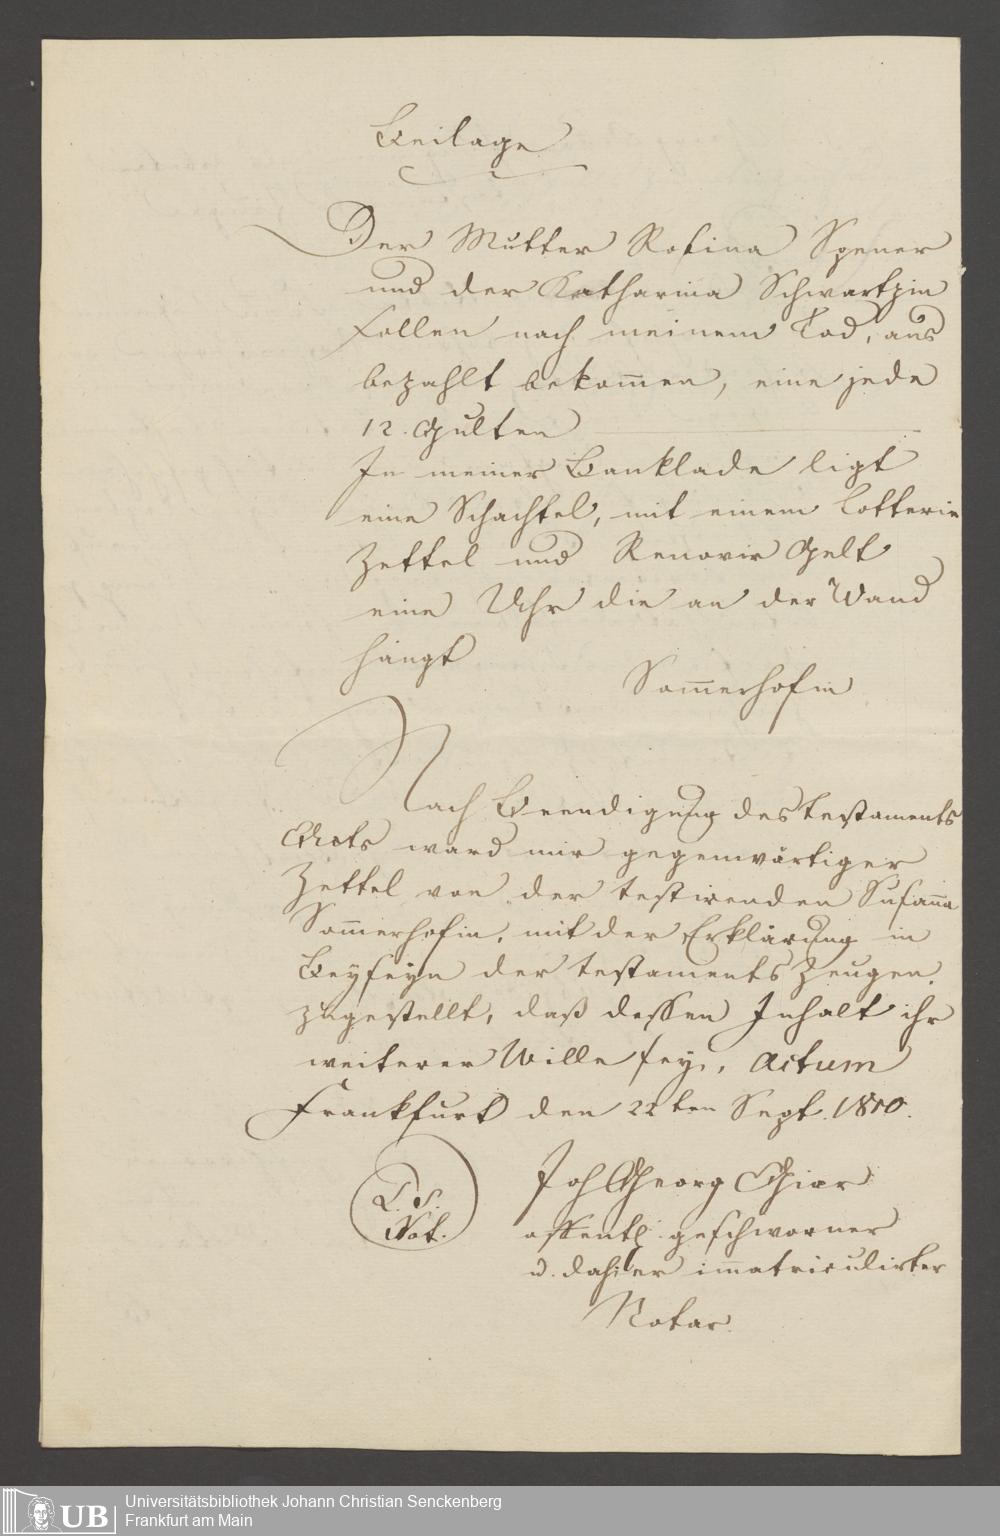 Beilage
Der Mutter Rosina Spener
und der Katharina Schwartzin
sollen nach meinem Tod, aus
bezahlt bekom̅en, eine jede
12. Gulten
In meiner Banklade ligt
eine Schachtel, mit einem Lotterie
Zettel und Renovir Gelt
eine Uhr die an der Wand
hängt
Som̅erhofin
Nach Beendigung des testaments
Acts ward mir gegenwärtiger
Zettel von der testirenden Susan̅a
Som̅erhofin, mit der Erklärung in
Beyseyn der testaments Zeugen
zugestellt, daß dessen Inhalt ihr
weiterer Wille sey., Actum
Frankfurt den 22ten Sept. 1810.
L. S.
Not.
Joh Georg
offentl. geschworner
u. dahier im̅atriculirter
Notar
UB
Universitätsbibliothek Johann Christian Senckenberg
Frankfurt am Main